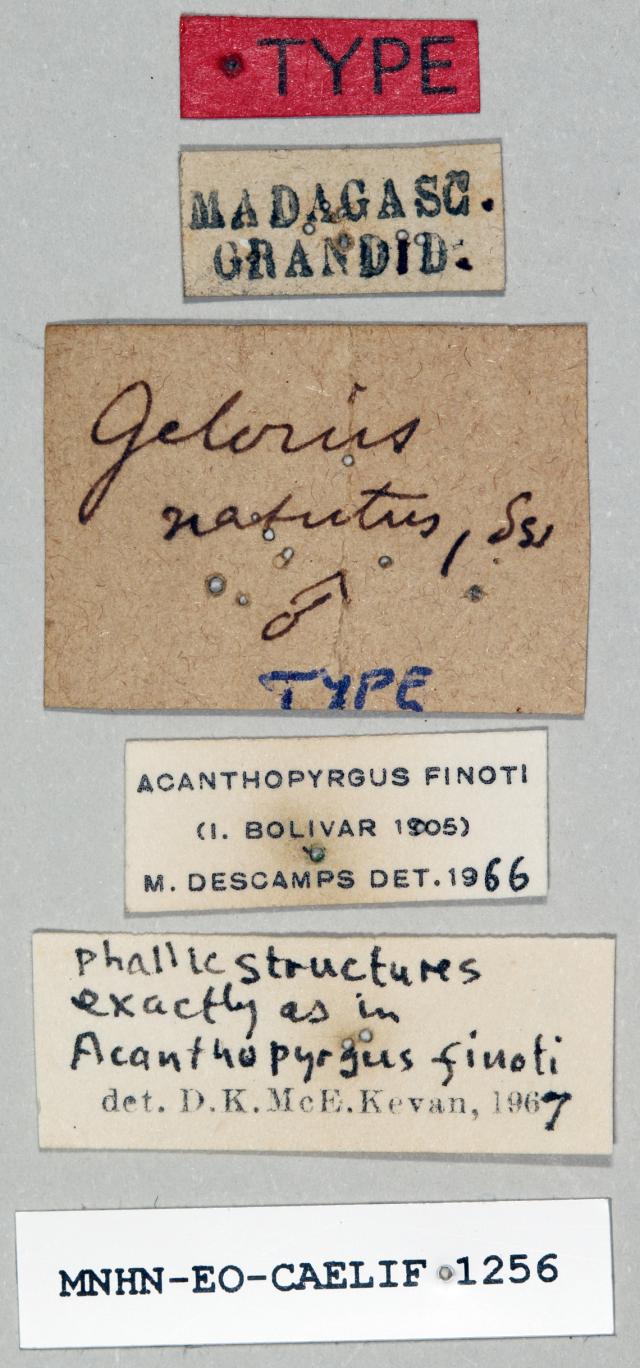 TYPE
MADAGASC.
GRANDID.
Gelorius
nasutus, Sss
♂
TYPE
ACANTHOPYRGUS FINOTI
(I. BOLIVAR 1905)
M. DESCAMPS DET. 1966
phallic structures
exactly as in
Acanthopyrgus finoti
det. D.K.McE.Kevan, 1967
MNHN-EO-CAELIF 1256